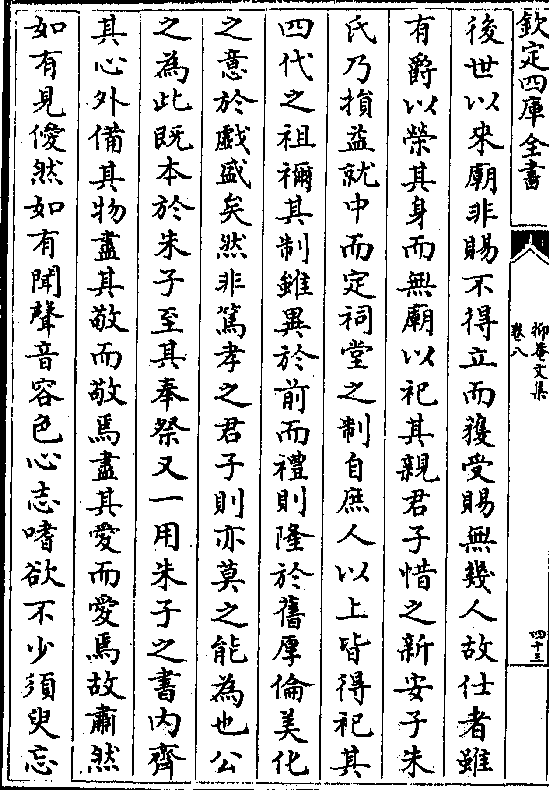 欽定四庫全書
抑菴文集
卷八
四十三
後世以來廟非賜不得立而獲受賜無幾人故仕者雖
有爵以榮其身而無廟以祀其親君子惜之新安子朱
氏乃損益就中而定祠堂之制自庶人以上皆得祀其
四代之祖禰其制雖異於前而禮則隆於舊厚倫美化
之意於戲盛矣然非篤孝之君子則亦莫之能為也公
之為此既本於朱子至其奉祭又一用朱子之書內齊
其心外備其物盡其敬而敬焉盡其愛而愛焉故肅然
如有見僾然如有聞聲音容色心志嗜欲不少須臾忘